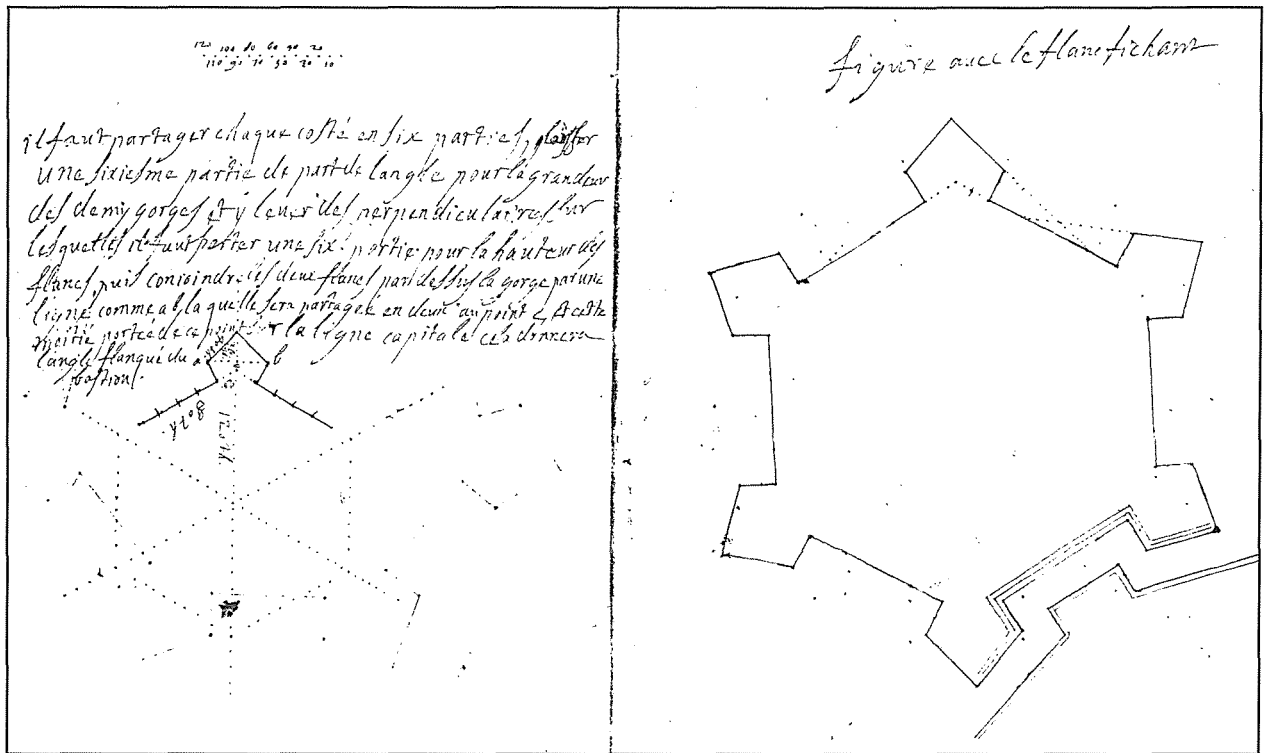 120 100 80 60 40 20
110 90 70 50 30 10
il faut partager chaque costé en six parties, laisser
une sixiesme partie de part de langle pour la grandeur
des demy gorges et y lever des perpendiculaires sur
lesquelles il faut porter une six. partie pour la hauteur des
flancs, puis conioindre les deux flancs par dessus la gorge par une
ligne comme ab laquelle sera partagée en deux au point c, et cette
moitié portée de ce point sur la ligne capitale ces donnera
langle flanqué du
bastion.
a b
c
80 tx.
120 tx
figure avec le flanc fichant